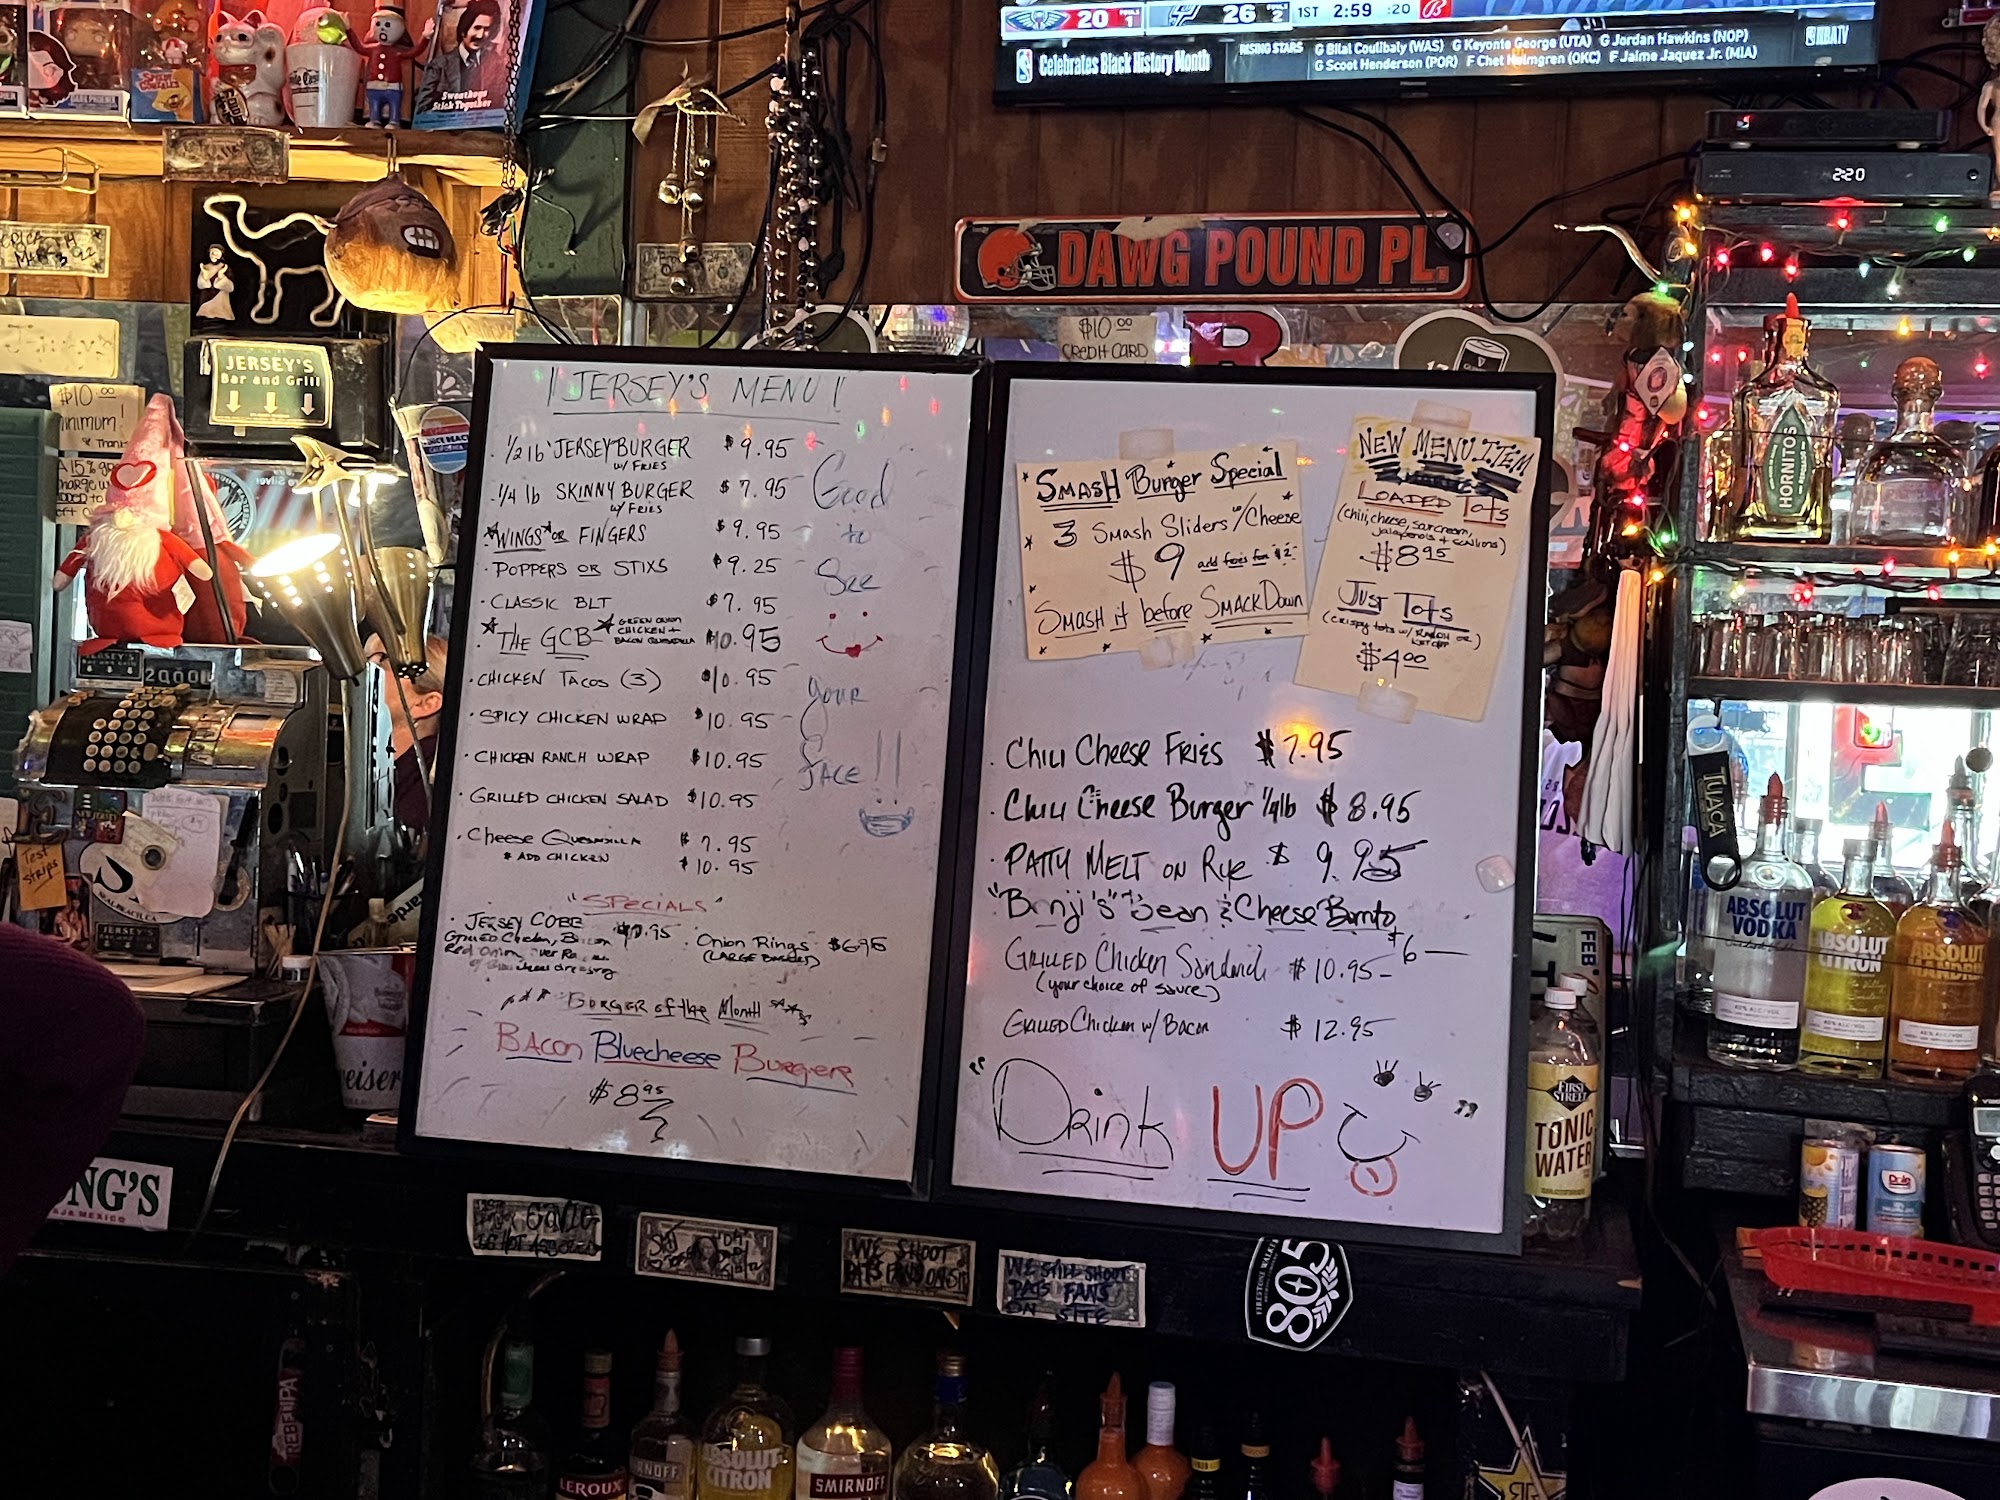 20 FOULS 1
26 FOULS 2
1ST 2:59 :20
Celebrates Black History Month
RISING STARS
G Bilal Coulibaly (WAS) G Keyonte George (UTA) G Jordan Hawkins (NOP)
G Scoot Henderson (POR) F Chet Holmgren (OKC) F Jaime Jaquez Jr. (MIA)
NBATV
Sweathogs
Stick Together
2:20
DAWG POUND PL.
$10.00
CREDIT CARD
JERSEY'S
Bar and Grill
$10.00
minimum!
A 15%
"JERSEY'S MENU"
· 1/2 lb JERSEY BURGER $9.95
w/ FRIES
· 1/4 lb SKINNY BURGER $7.95
w/ FRIES
WINGS OR FINGERS $9.95
· POPPERS OR STIXS $9.25
· CLASSIC BLT $7.95
· THE GCB $10.95
GREEN ONION
CHICKEN +
BACON QUESADILLA
· CHICKEN TACOS (3) $10.95
· SPICY CHICKEN WRAP $10.95
· CHICKEN RANCH WRAP $10.95
· GRILLED CHICKEN SALAD $10.95
· Cheese QUESADILLA $7.95
* ADD CHICKEN $10.95
Good
to
See
your
FACE!!
"SPECIALS"
· JERSEY COBB
GRILLED Chicken,
Red Onion,
Onion Rings $6.95
(LARGE BASKET)
BURGER of the Month
BACON Bluecheese BURGER
$8.95
SMASH Burger Special
3 Smash Sliders w/Cheese
$9 add fries for $2
SMASH it before SMACKDOWN
NEW MENU ITEM
LOADED Tots
(chili, cheese, sour cream,
jalapenos + scallions)
$8.95
JUST Tots
(CRISPY tots w/ RANCH OR
KETCHUP)
$4.00
· Chili Cheese Fries $7.95
· Chili Cheese Burger 1/4lb $8.95
· PATTY MELT ON Rye $9.95
"Benji's" Bean & Cheese Burrito
$6
GRILLED Chicken Sandwich $10.95
(your choice of sauce)
GRILLED Chicken w/ Bacon $12.95
"Drink UP"
HORNITOS
TUACA
ABSOLUT
VODKA
ABSOLUT
CITRON
ABSOLUT
FEB
FIRST
STREET
TONIC
WATER
Dole
Test
strips
JERSEY'S
NG'S
BAJA MEXICO
WE SHOOT
PATS FANS ON SITE
WE STILL SHOOT
PATS FANS
ON SITE
FIRESTONE WALKER
805
REBELIPA
LEROUX
ABSOLUT
CITRON
SMIRNOFF